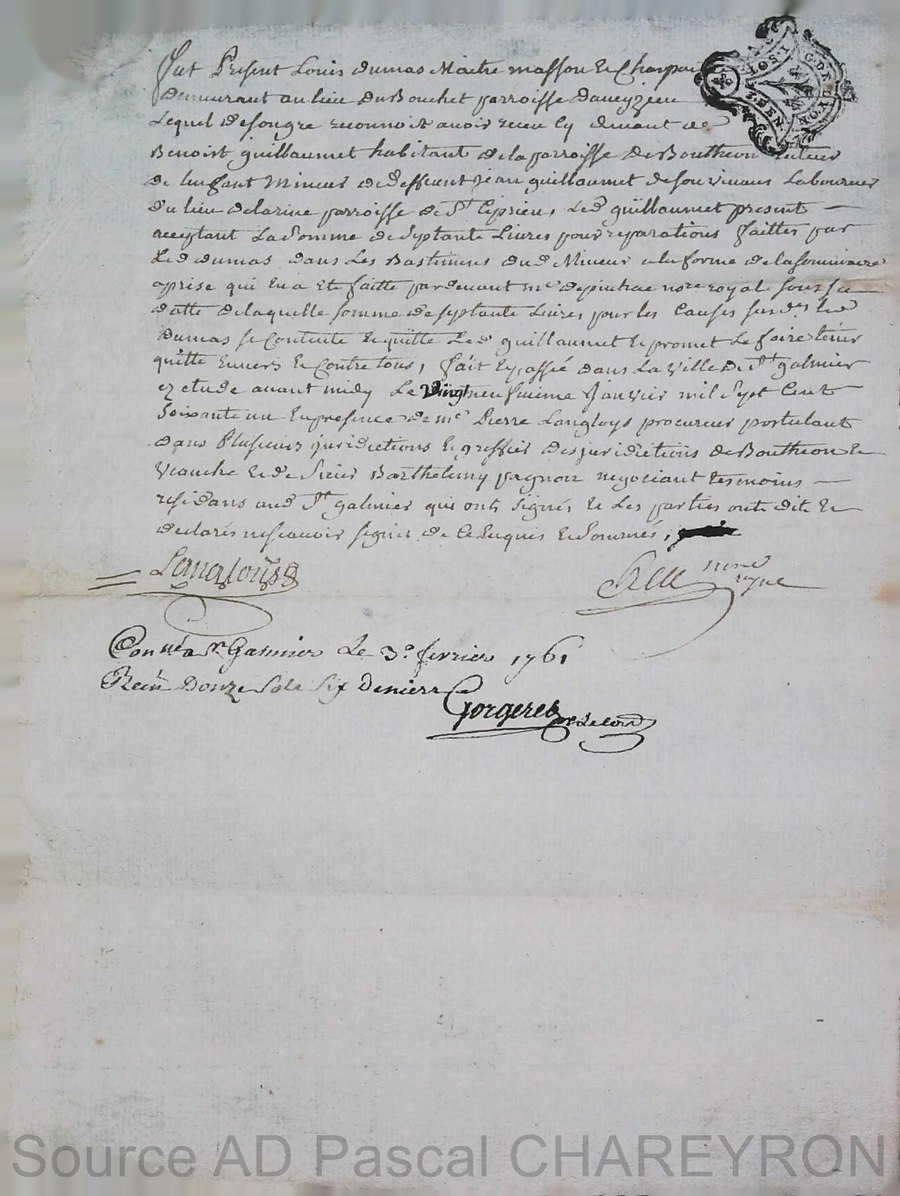 Fut Présent Louis dumas Maitre masson et Charpan
demeurant au lieu du Bouchet parroisse daveyzieu
Lequel de son gre reconnoit avoir receu cy devant de
Benoist guillaumet habitant de la parroisse de Boutheon tuteur
de lenfant Mineur de deffeunt jean guillaumet de son vivans Laboureur
du lieu de parroisse de St Cyprien, Led guillaumet present
acceptant La Somme de Septante Livres pour reparations faittes par
Led dumas dans Les Bastimens dud Mineur a la forme de la Sommaire
aprise qui en a Eté faitte pardevant me nore royal sous sa
datte de laquelle somme de septante Livres pour les Causes susdes led
dumas se contente et quitte Led guillaumet et promet Le faire tenir
quitte envers et Contre tous, fait et passé dans La ville de St galmier
ez etude avant midy Le vingt neufvieme Janvier mil Sept Cent
Soixante un En presence de me Pierre Langloys procureur postulant
dans Plusieurs juridictions et greffier des juridictions de Boutheon et
Veauche et de Sieur Barthelemy pagnon negociant temoins
residans aud St galmier qui ont signés et Les parties ont dit et
declarés ne scavoir signer de ce Enquis et Sommés,
Langloys
nore
royal
Conlle a St Galmier Le 3e fevrier 1761
Recu Douze Sols Six deniers
Gorgeret
G. DE LYON
1 SOL
3. DEN.
Source AD Pascal CHAREYRON